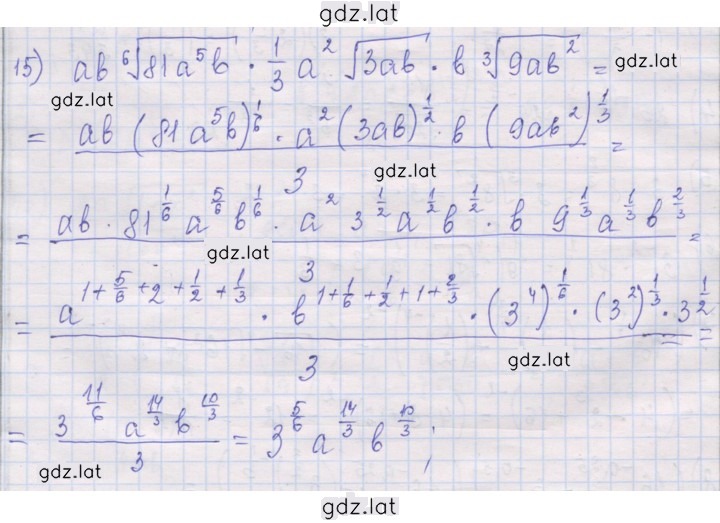 gdz.lat
15) ab ⁶√(81a⁵b) · 1/3 a² √(3ab) · b ³√(9ab²) = gdz.lat
gdz.lat
= (ab (81a⁵b)^(1/6) · a² (3ab)^(1/2) · b (9ab²)^(1/3)) / 3 =
gdz.lat
= (ab · 81^(1/6) a^(5/6) b^(1/6) · a² 3^(1/2) a^(1/2) b^(1/2) · b 9^(1/3) a^(1/3) b^(2/3)) / 3 =
gdz.lat
= (a^(1+5/6+2+1/2+1/3) · b^(1+1/6+1/2+1+2/3) · (3⁴)^(1/6) · (3²)^(1/3) · 3^(1/2)) / 3 =
gdz.lat
= (3^(11/6) a^(14/3) b^(10/3)) / 3 = 3^(5/6) a^(14/3) b^(10/3);
gdz.lat
gdz.lat